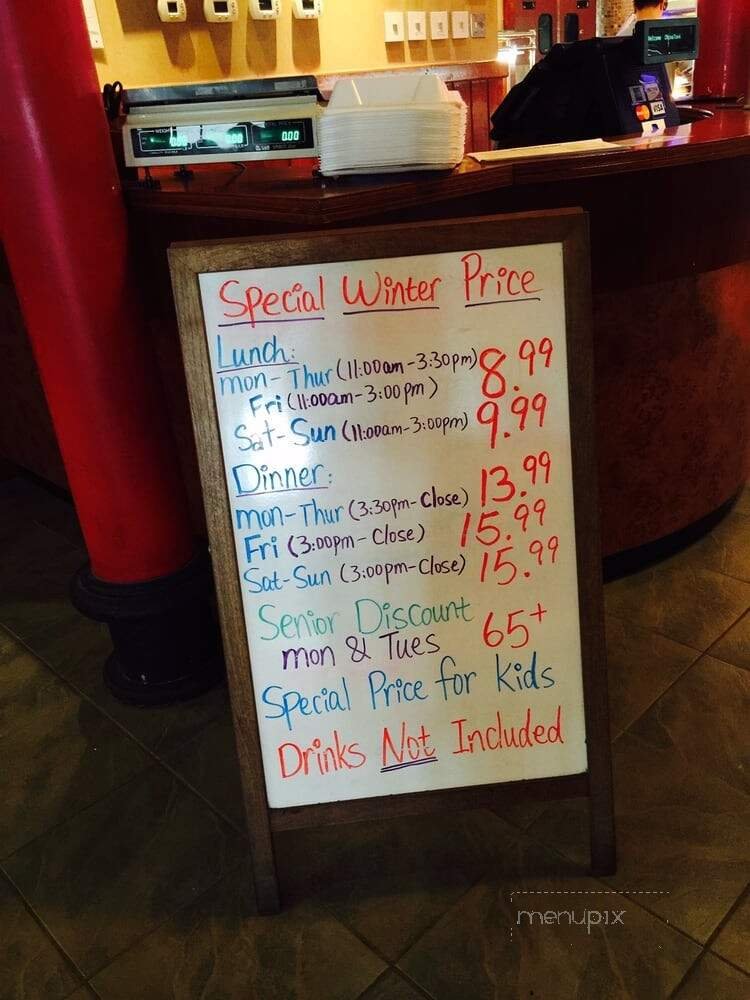 Welcome
WEIGHT
0.00 0.00 0.00
VISA
Special Winter Price
Lunch:
mon-Thur (11:00am-3:30pm) 8.99
Fri (11:00am-3:00pm)
Sat-Sun (11:00am-3:00pm) 9.99
Dinner:
mon-Thur (3:30pm-Close) 13.99
Fri (3:00pm-Close) 15.99
Sat-Sun (3:00pm-Close) 15.99
Senior Discount 65+
mon & Tues
Special Price for kids
Drinks Not Included
menupix